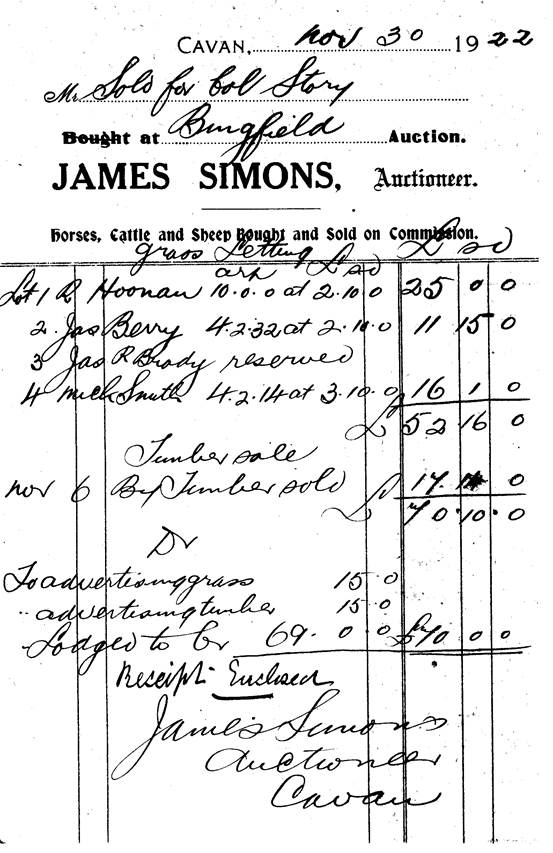 CAVAN, Nov 30 1922
Mr Sold for Col Story
Bought at Bingfield Auction.
JAMES SIMONS, Auctioneer.
Horses, Cattle and Sheep Bought and Sold on Commission.
grass Letting £ s d
arp £ s d
Lot 1 R Hoonan 10.0.0 at 2.10.0 25 0 0
2 Jas Berry 4.2.32 at 2.10.0 11 15 0
3 Jas R Brady reserved
4 Mich Smith 4.2.14 at 3.10.0 16 1 0
£ 52 16 0
Timber sale
Nov 6 By Timber sold 17. 14 0
£ 70.10.0
Dr
To advertising grass 15 0
" advertising timber 15 0
Lodged to Cr 69. 0 0 £70 0 0
Receipt Enclosed
James Simons
Auctioneer
Cavan